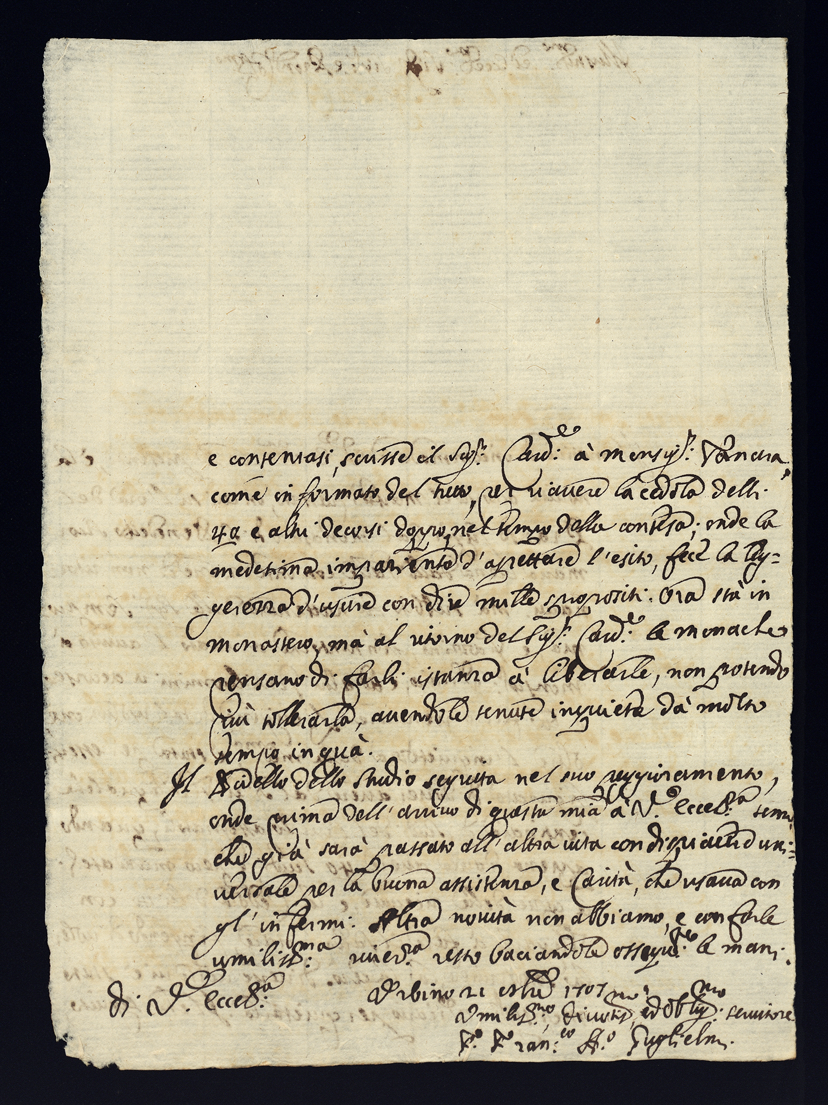 e contentasi, scrisse il Sig.r Card.e à monsig.r
come informato del tutto, per riavere la cedola delli
e altri decorsi doppo, nel tempo della contesa; onde la
medesima impaziente d'aspettare l'esito, fece la leg=
gerezza d'usure con dire mille spropositi. Ora stà in
monastero, mà al ritorno del Sig.r Card.e le monache
pensano di farli istanza à liberarle, non potendo
più tollerarla, avendole tenute inquiete da molto
tempo in quà.
Il Bidello dello studio seguita nel suo peggioramento,
onde prima dell'arrivo di questa mia à V. Eccell.a temo
che già sarà passato all'altra vita con dispiacere uni=
versale per la buona assistenza, e Carità, che usava con
gl'infermi. Altra novità non abbiamo, e con farle
umiliss.ma river.a resto baciandole osseq.te le mani.
di V. Eccell.a Urbino 21 1707
umiliss.mo divotiss.mo ed obblig.mo servitore
Fran.co Guglielmi